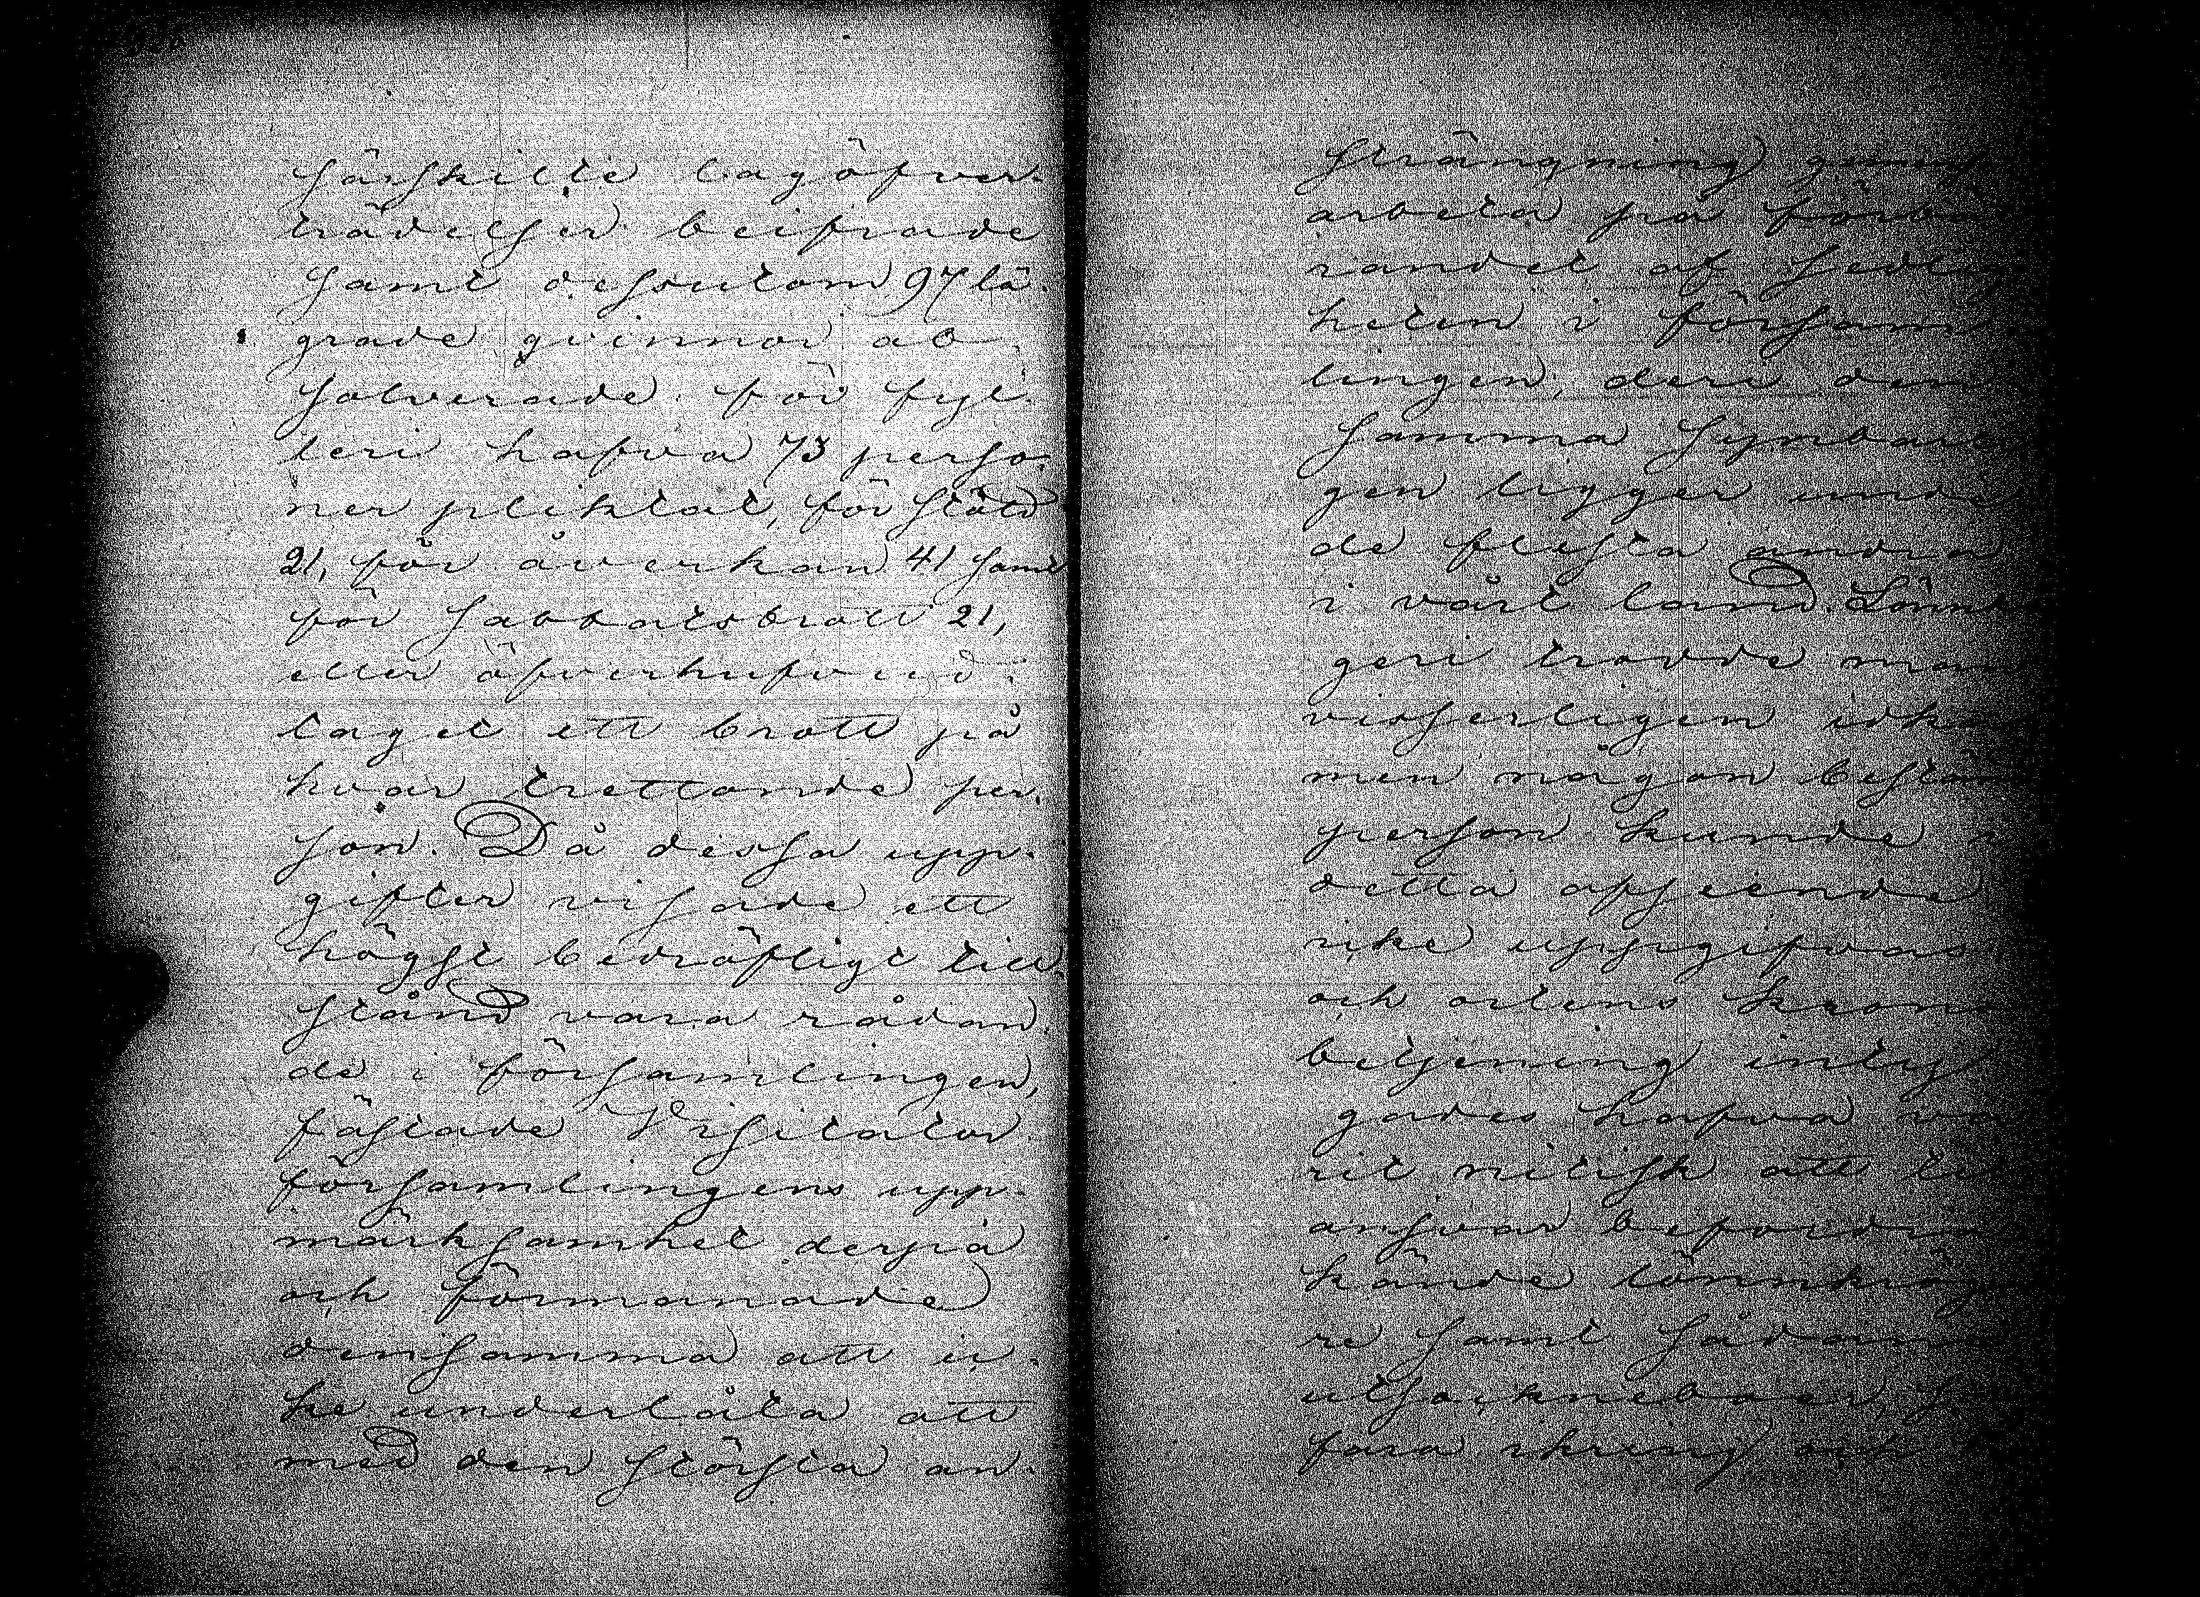 särskilte lagöfver-
trädelser beifrade
samt dessutom 97 lä-
grade qvinnor ab-
solverade. för fyl-
leri hafva 73 perso-
ner pliktat, för stöld
21, för åverkan 41 samt
för sabbatsbrott 21,
eller öfverhufvud
taget ett brott på
hvar trettonde per-
son. Då dessa upp-
gifter visade ett
högst bedröfligt till-
stånd vara rådan-
de i församlingen,
fästade Visitator
församlingens upp-
märksamhet derpå
och förmanade
densamma att ic-
ke underlåta att
med den största an-
strängning
arbeta på förbätt
randet af sedlig
heten i församl
lingen, deri den
samma synbarli
gen ligger under
de flesta andra
i vårt land. Lönnkrö
geri trodde man
visserligen idkas
men någon bestämd
person kunde i
detta afseende
icke uppgifvas
och ortens krono
betjening intyg
gades hafva va
rit nitisk att till
ansvar befordra
kände lönnkröga
re samt sådanna
utsockneboer, s
fara ikring och